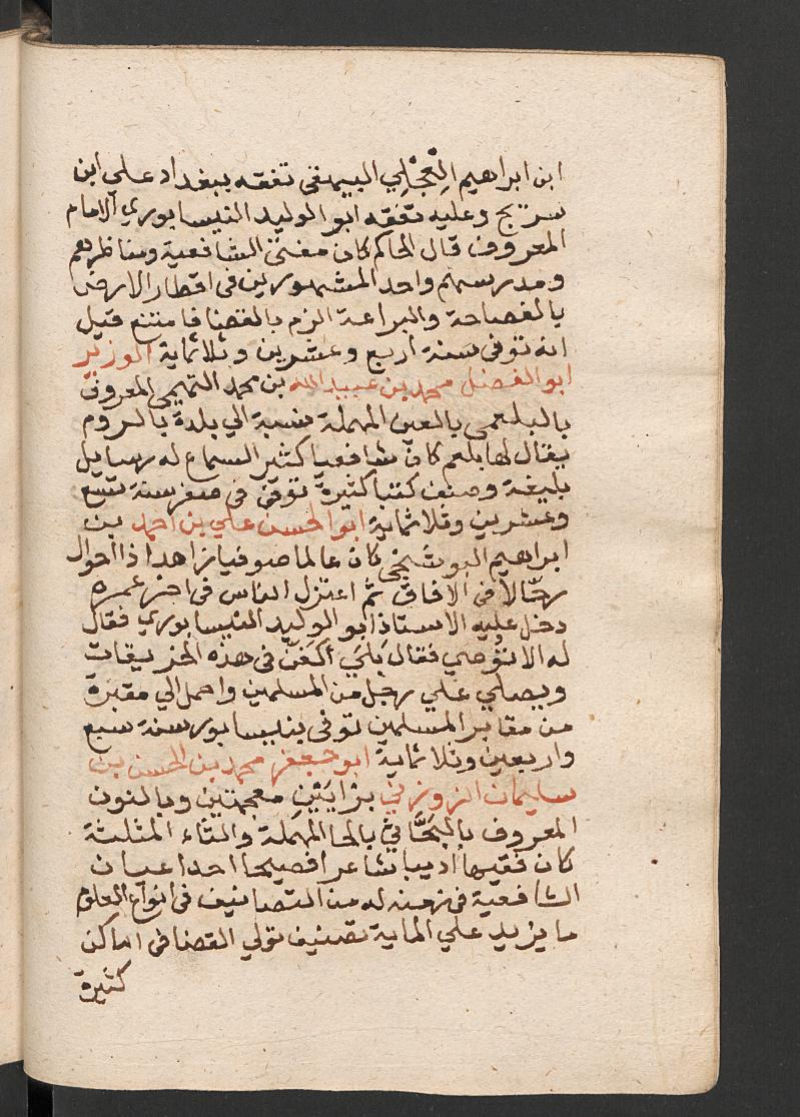 ابن ابراهيم الْعِجْلِي البيهقي تفقه ببغداد علي ابن
سريج وعليه تفقه ابو الوليد النيسابوري الامام
المعروف قال الحاكم كان مفتي الشافعية ومناظرهم
ومدرسهم واحد المشهورين في اقطار الارض
بالفصاحة والبراعة الزم بالقضا فامتنع قيل
انه توفي سنة اربع وعشرين وثلاثماية الوزير
ابو الفضل محمد بن عبيد الله بن محمد التميمي المعروف
بالبلعمي بالعين المهملة نسبة الي بلدة بالروم
يقال لها بلعم كان شافعيا كثير السماع له رسايل
بليغة وصنف كتبا كثيرة توفي في صفر سنة تسع
وعشرين وثلاثماية ابو الحسن علي بن احمد بن
ابراهيم البوشنجي كان عالما صوفيا زاهدا ذا احوال
رحّالاً في الافاق ثم اعتزل الناس في اخر عمره
دخل عليه الاستاذ ابو الوليد النيسابوري فقال
له الا توصي فقال بَلَي أكفن في هذه الخريقات
ويصلي علي رجل من المسلمين واحمل الي مقبرة
من مقابر المسلمين توفي بنيسابور سنة سبع
واربعين وثلاثماية ابو جعفر محمد بن الحسن بن
سليمان الزوزني بزايَيْنِ معجمتين وبالنون
المعروف بالبَحَّاثِ بالحا المهملة والثاء المثلثة
كان فقيها اديبا شاعرا فصيحا احد اعيان
الشافعية في زمنه له من التصانيف في انواع العلوم
ما يزيد علي الماية تصنيف تولي القضا في اماكن
كثيرة